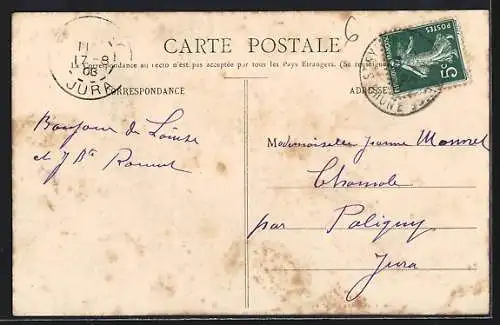 CARTE POSTALE
La Correspondance au recto n'est pas acceptée par tous les Pays Etrangers. (Se renseigner
CORRESPONDANCE
ADRESSE
POSTES
5c
11
17-8
08
JURA
6
Bonjour de Louise
et J Bte
Mademoiselle Jeanne Monnet
Chamole
par Poligny
Jura